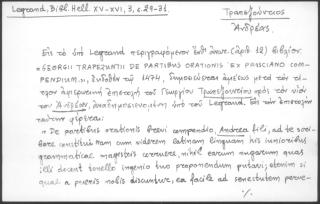 Legrand, Bibl. Hell. XV-XVI, 3, σ. 29-31.
Τραπεζούντιος
Ἀνδρέας.
Εἰς τὸ ὑπὸ Legrand περιγραφόμενον (ἀριθ 12) βιβλίον
«GEORGII TRAPEZUNTII DE PARTIBUS ORATIONIS EX PRISCIANO COM-
PENDIUM», ἐκδοθὲν τῷ 1474, δημοσιεύεται ἀμέσως μετὰ τὸν τί-
τλον ἀφιερωτικὴ ἐπιστολὴ τοῦ Γεωργίου Τραπεζουντίου πρὸς τὸν υἱόν
του Ἀνδρέαν, ἀναδημοσιευομένη ὑπὸ τοῦ Legrand. Εἰς τὴν ἐπιστολὴν
ταύτην φέρεται:
« De partibus orationis brevi compendio, Andrea fili, ad te scri-
bere constitui. Nam cum viderem latinam linguam his junioribus
grammaticae magistris corruere, nihil earum rerum quas
illi docent tenello ingenio tuo proponendum putavi; etenim si
qua a pueris nobis discuntur, ea facile ad senectutem perve-
·/.